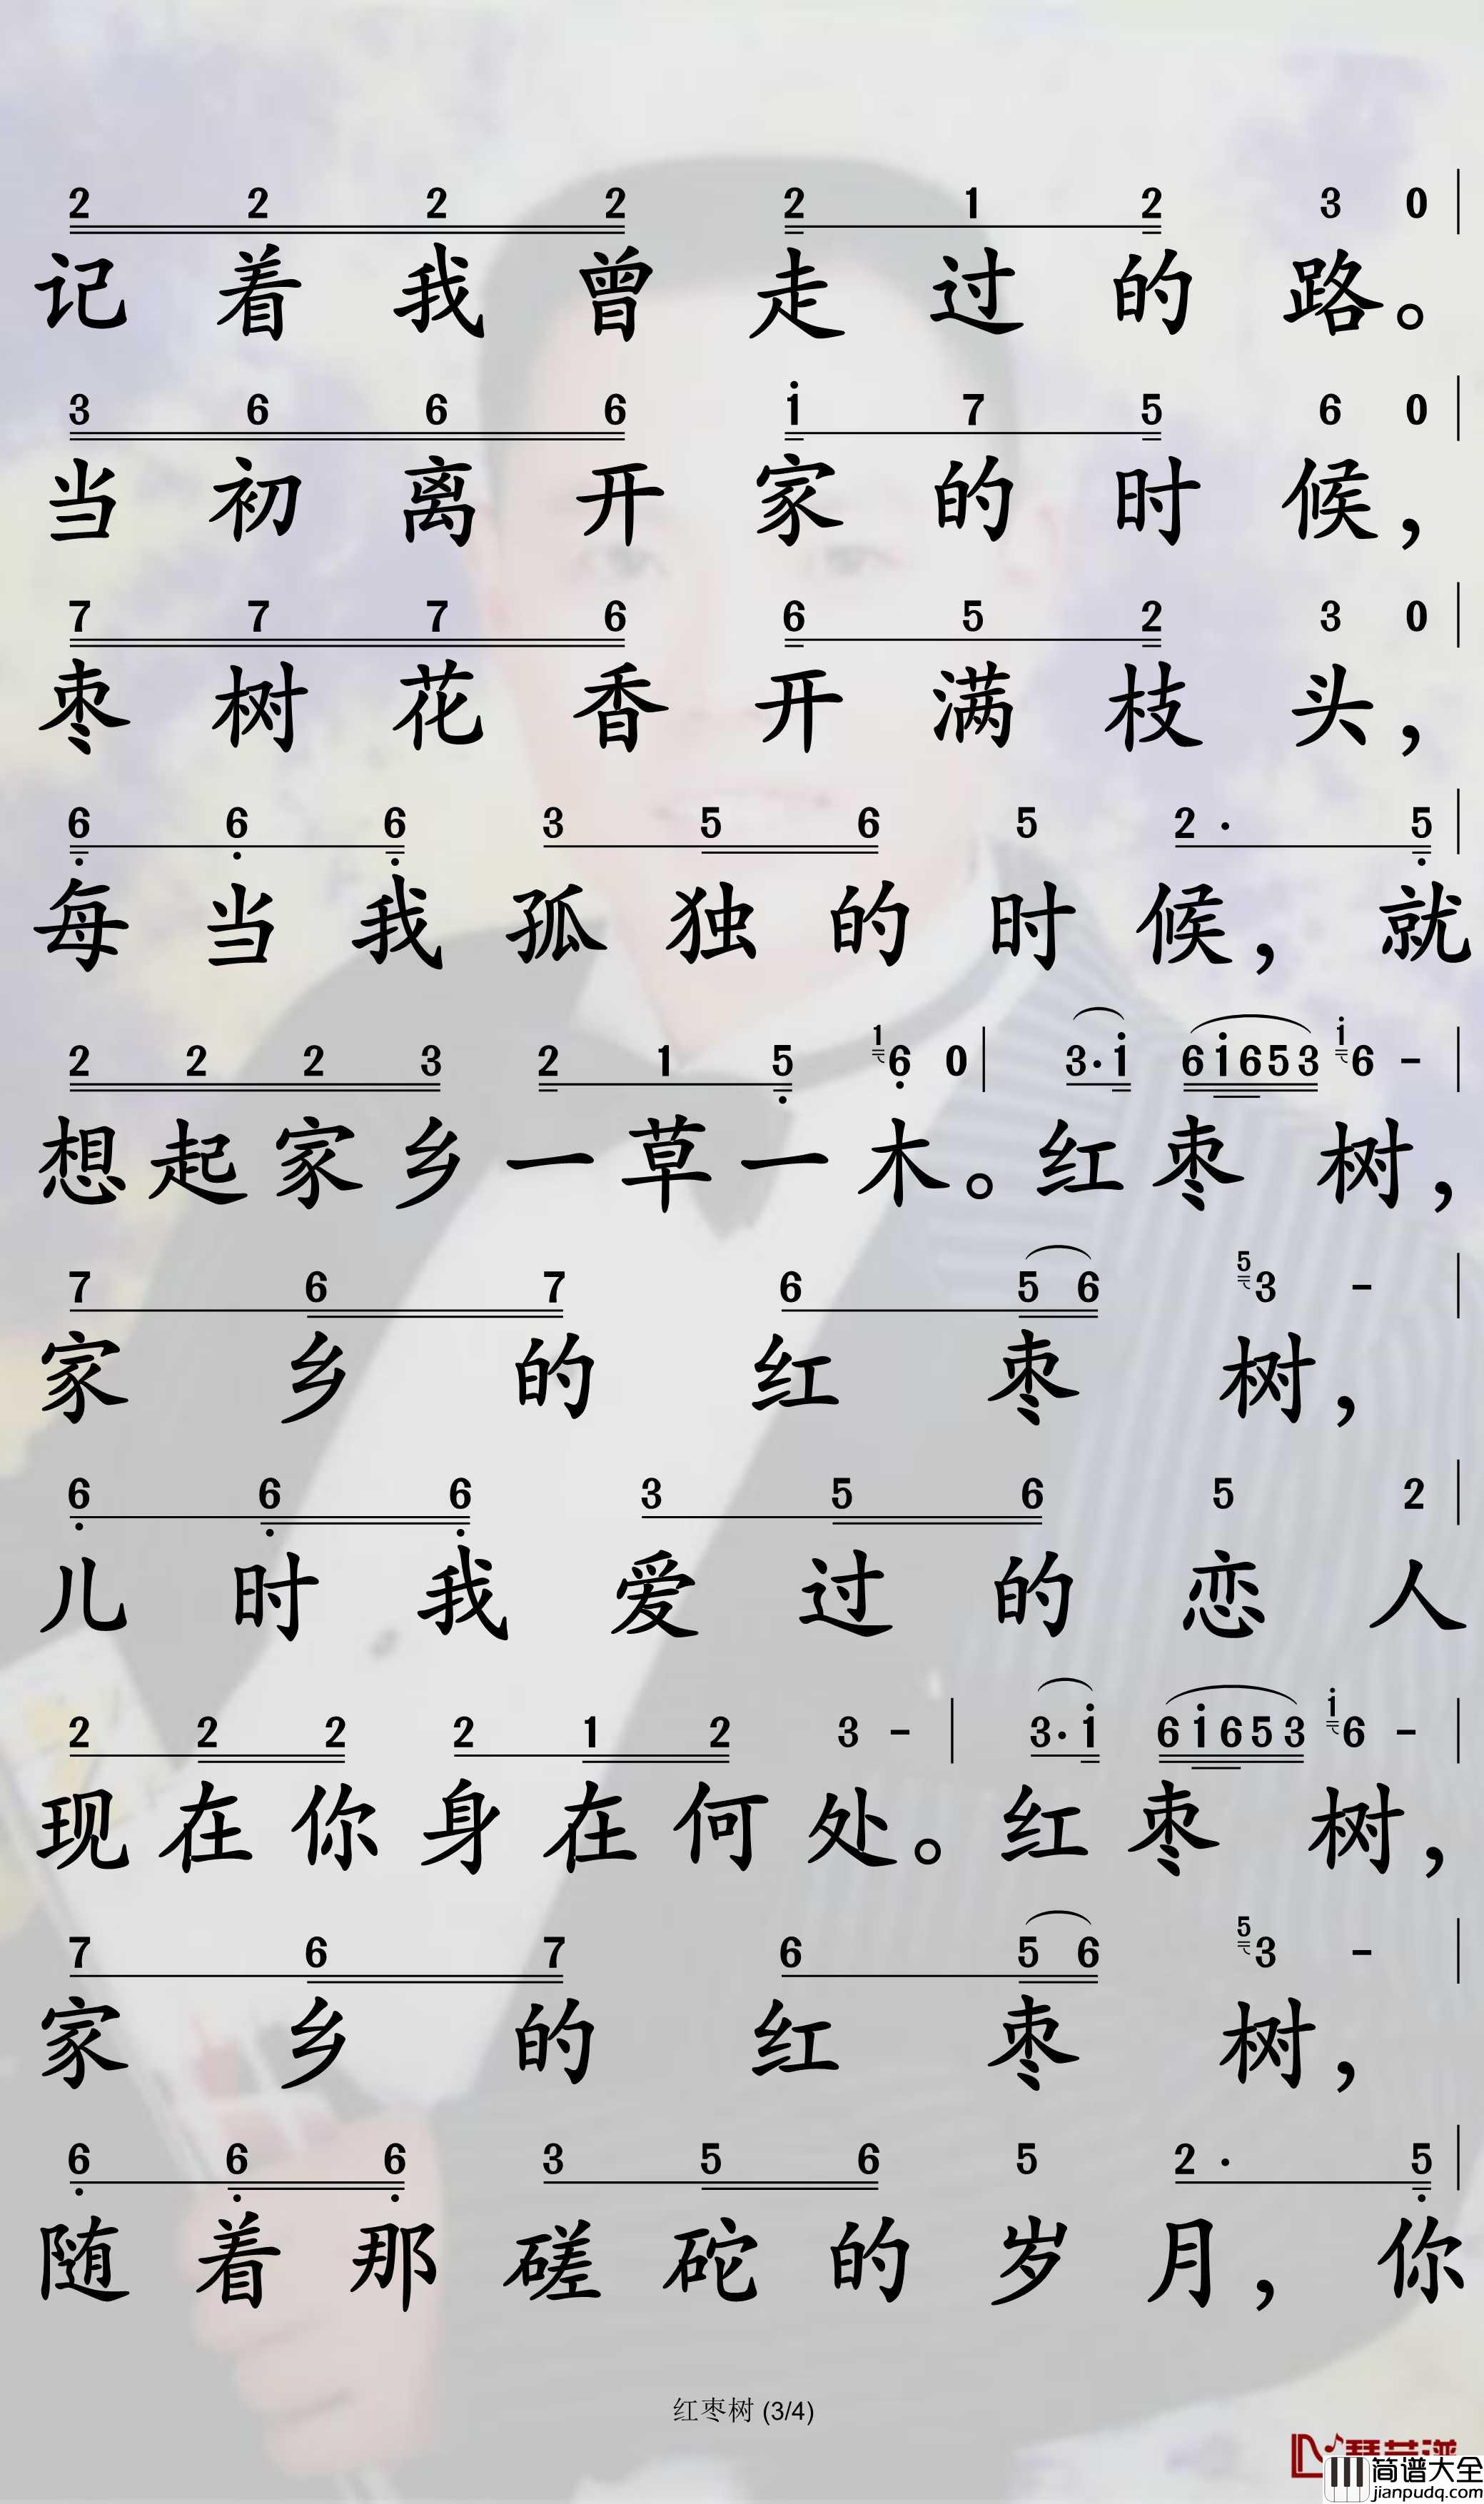 2 2 2 2 2 1 2 3 0
记着我曾走过的路。
3 6 6 6 i 7 5 6 0
当初离开家的时候，
7 7 7 6 6 5 2 3 0
枣树花香开满枝头，
6 6 6 3 5 6 5 2· 5
每当我孤独的时候，就
2 2 2 3 2 1 5 1 6 0 3·i 6i653 i 6 -
想起家乡一草一木。红枣树，
7 6 7 6 5 6 5 3 -
家乡的红枣树，
6 6 6 3 5 6 5 2
儿时我爱过的恋人
2 2 2 2 1 2 3 - 3·i 6i653 i 6 -
现在你身在何处。红枣树，
7 6 7 6 5 6 5 3 -
家乡的红枣树，
6 6 6 3 5 6 5 2· 5
随着那磋砣的岁月，你
红枣树 (3/4)
简谱大全
jianpudq.com